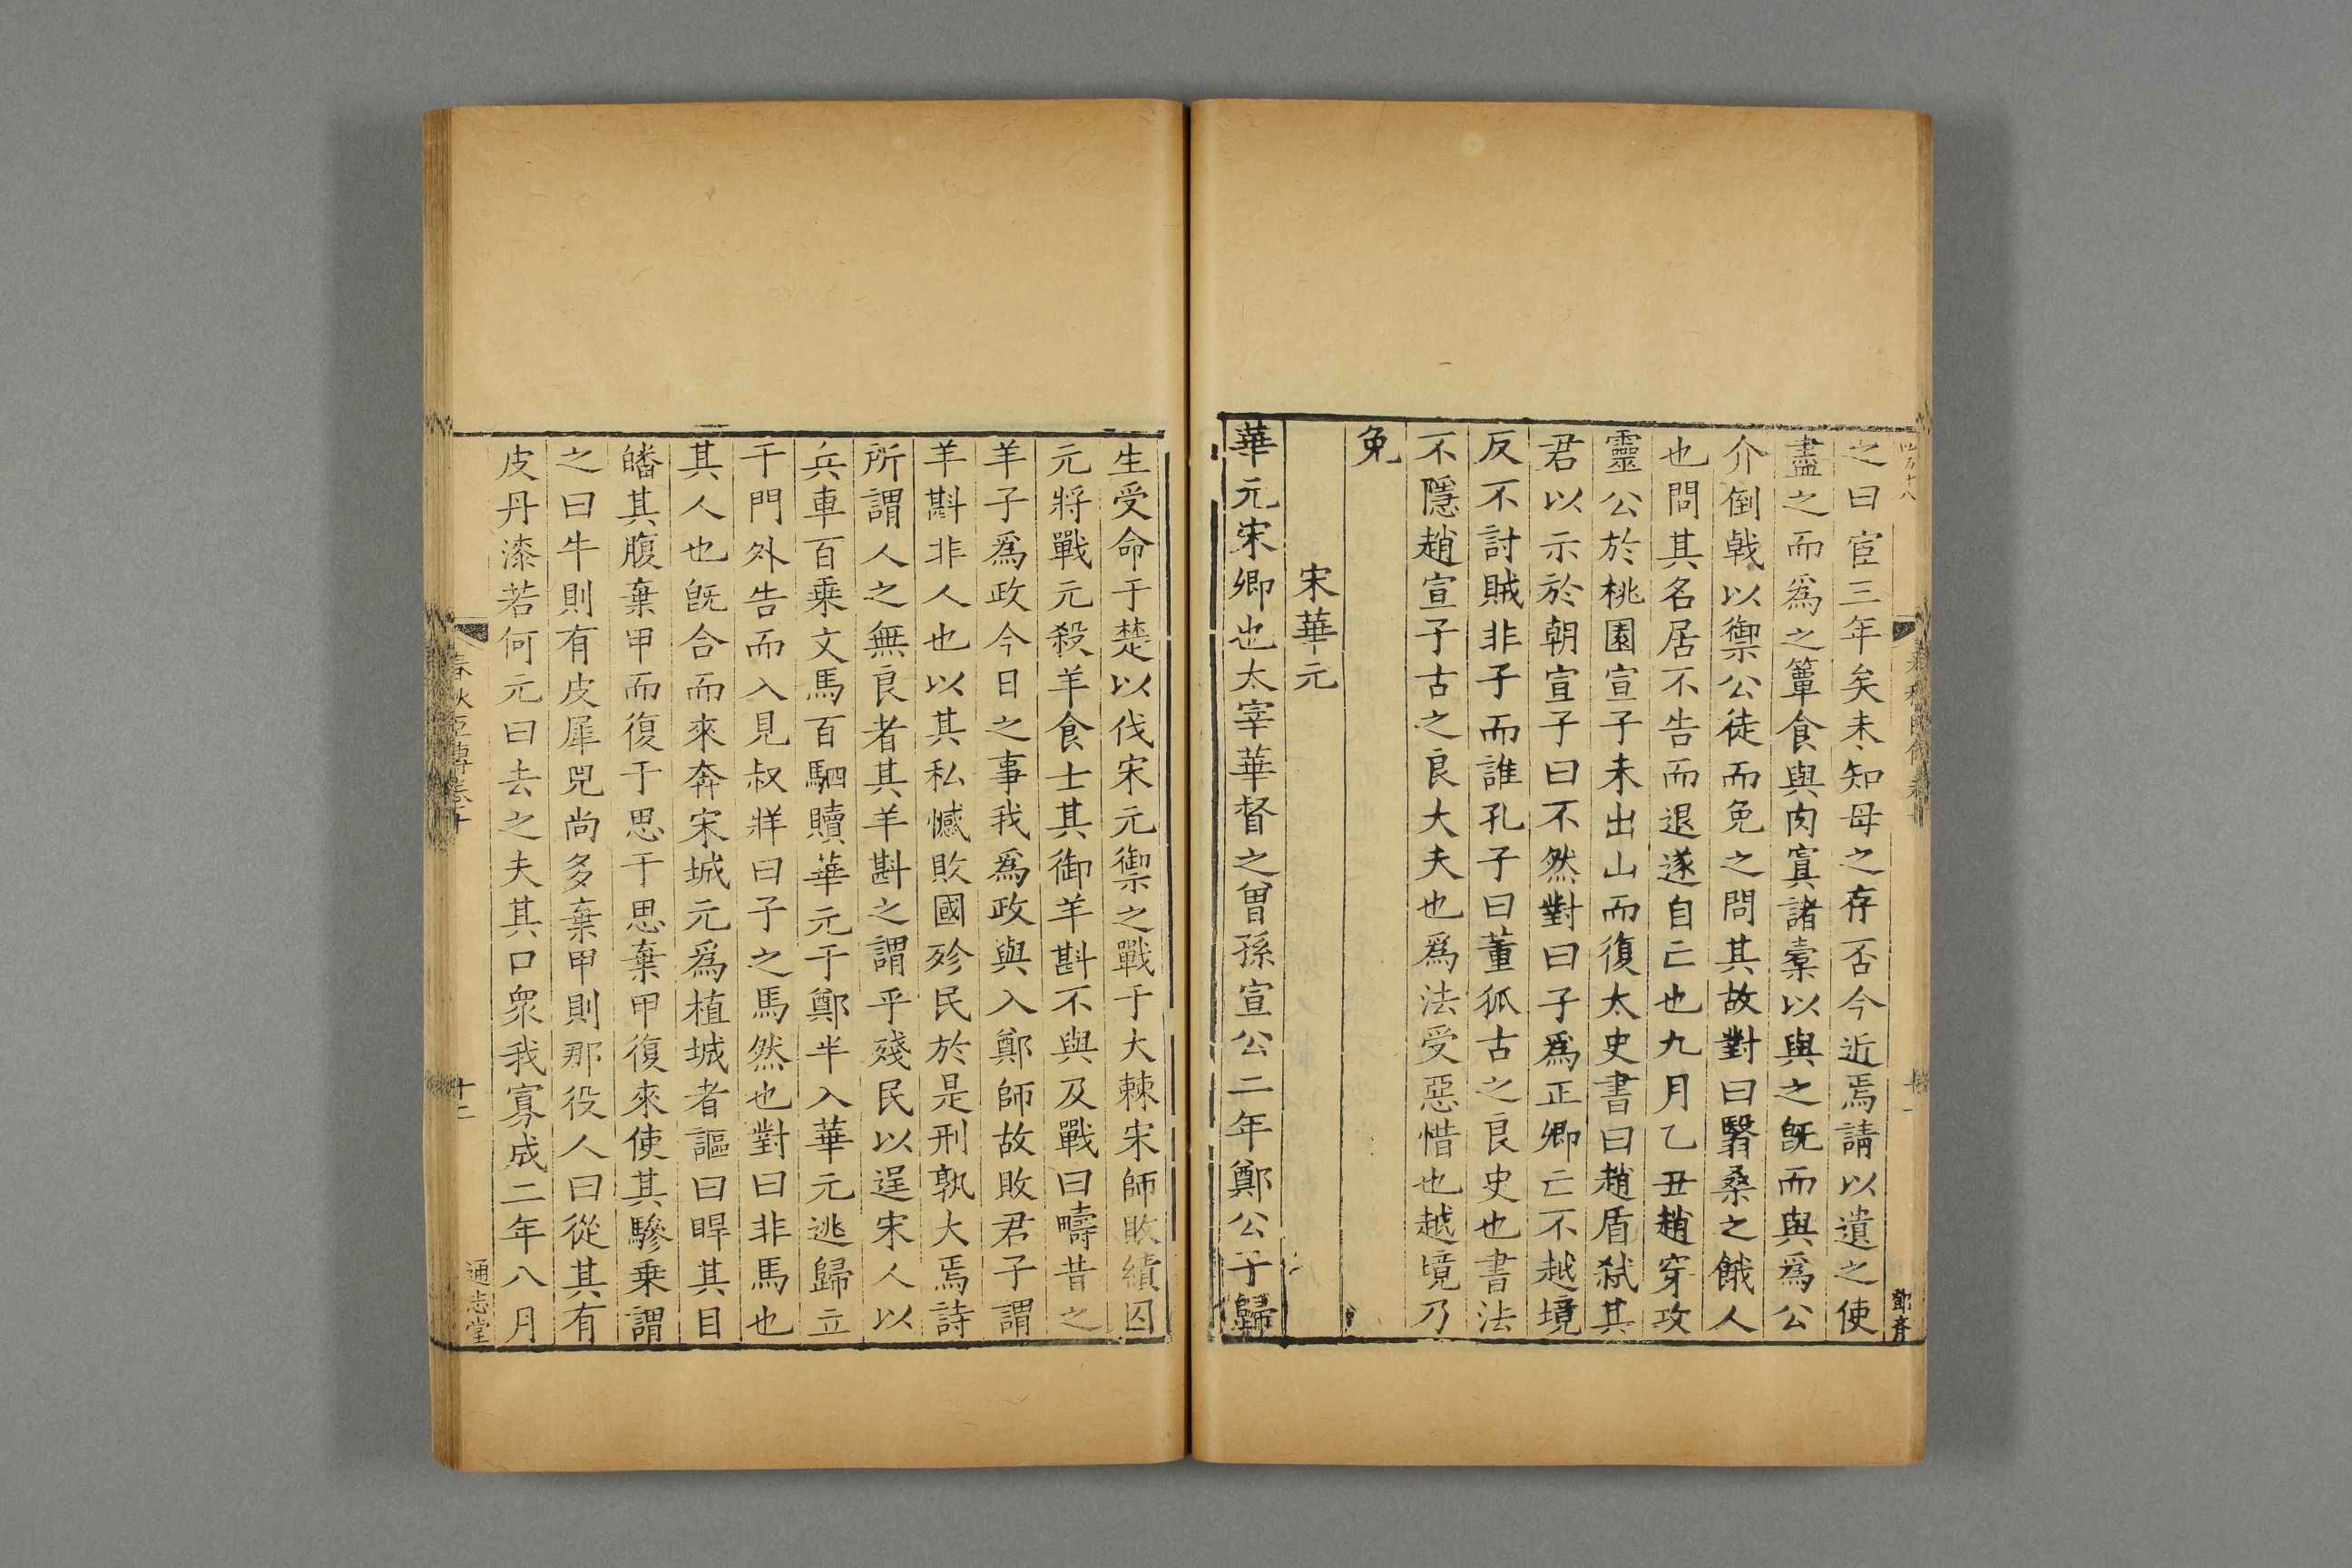 之曰宦三年矣未知母之存否今近焉請以遺之使
盡之而爲之簞食與肉寘諸橐以與之旣而與爲公
介倒戟以禦公徒而免之問其故對曰翳桑之餓人
也問其名居不告而退遂自亡也九月乙丑趙穿攻
靈公於桃園宣子未出山而復太史書曰趙盾弑其
君以示於朝宣子曰不然對曰子爲正卿亡不越境
反不討賊非子而誰孔子曰董狐古之良史也書法
不隱趙宣子古之良大夫也爲法受惡惜也越境乃
免
宋華元
華元宋卿也太宰華督之曾孫宣公二年鄭公子歸
生受命于楚以伐宋元禦之戰于大棘宋師敗績囚
元將戰元殺羊食士其御羊斟不與及戰曰疇昔之
羊子爲政今日之事我爲政與入鄭師故敗君子謂
羊斟非人也以其私憾敗國殄民於是刑孰大焉詩
所謂人之無良者其羊斟之謂乎殘民以逞宋人以
兵車百乗文馬百駟贖華元于鄭半入華元逃歸立
于門外告而入見叔牂曰子之馬然也對曰非馬也
其人也旣合而來奔宋城元爲植城者謳曰睅其目
皤其腹棄甲而復于思于思棄甲復來使其驂乗謂
之曰牛則有皮犀兕尚多棄甲則那役人曰從其有
皮丹漆若何元曰去之夫其口衆我寡成二年八月
春秋臣傳卷十
十二
通志堂